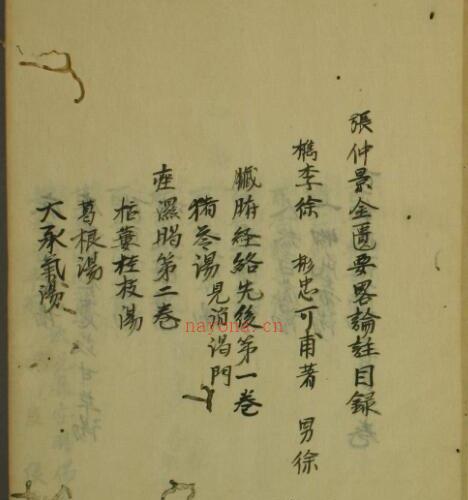 張仲景金匱要畧論註目録
檇李徐 彬忠可甫著 男徐
臟腑経絡先後第一巻
猪苓湯見消渴門
痙濕暍第二巻
栝蔞桂枝湯
葛根湯
大承氣湯
nayona.cn